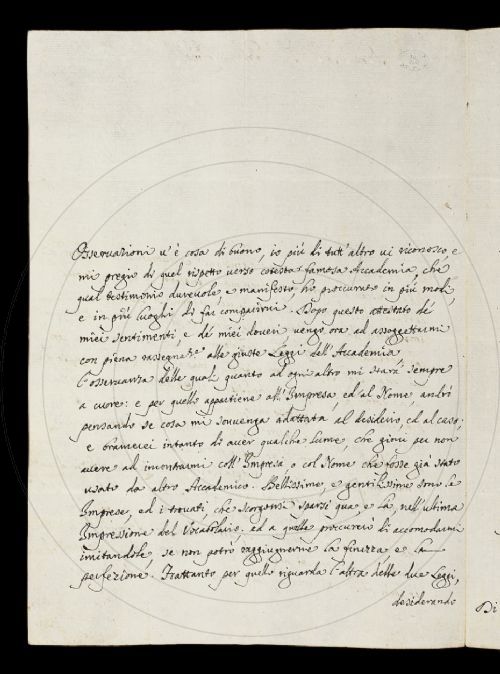 Osservazioni v'è cosa di buono, io più di tutt'altro vi riconosco, e
mi pregio di quel rispetto verso cotesta famosa Accademia, che
qual testimonio durevole, e manifesto, ho procurato in più modi,
e in più luoghi di far comparirvi. Dopo questo attestato de'
miei sentimenti, e de' miei doveri vengo ora ad assoggettarmi
con piena rassegnaz.e alle giuste Leggi dell'Accademia,
l'osservanza delle quali quanto ad ogni altro mi starà sempre
a cuore: e per quello appartiene all'Impresa, ed al Nome, andrò
pensando se cosa mi sovvenga adattata al desiderio, ed al caso;
e bramerei intanto di aver qualche lume, che giovi per non
avere ad incontrarmi coll'Impresa, o col Nome che fosse già stato
usato da altro Accademico. Bellissime, e gentilissime sono le
Imprese, ed i trovati, che scorgonsi sparsi qua, e là, nell'ultima
Impressione del Vocabolario, ed a quelle procurerò di accomodarmi
imitandole, se non potrò raggiugnerne la finezza e la
perfezione. Frattanto per quello riguarda l'altra delle due Leggi,
desiderando
Di